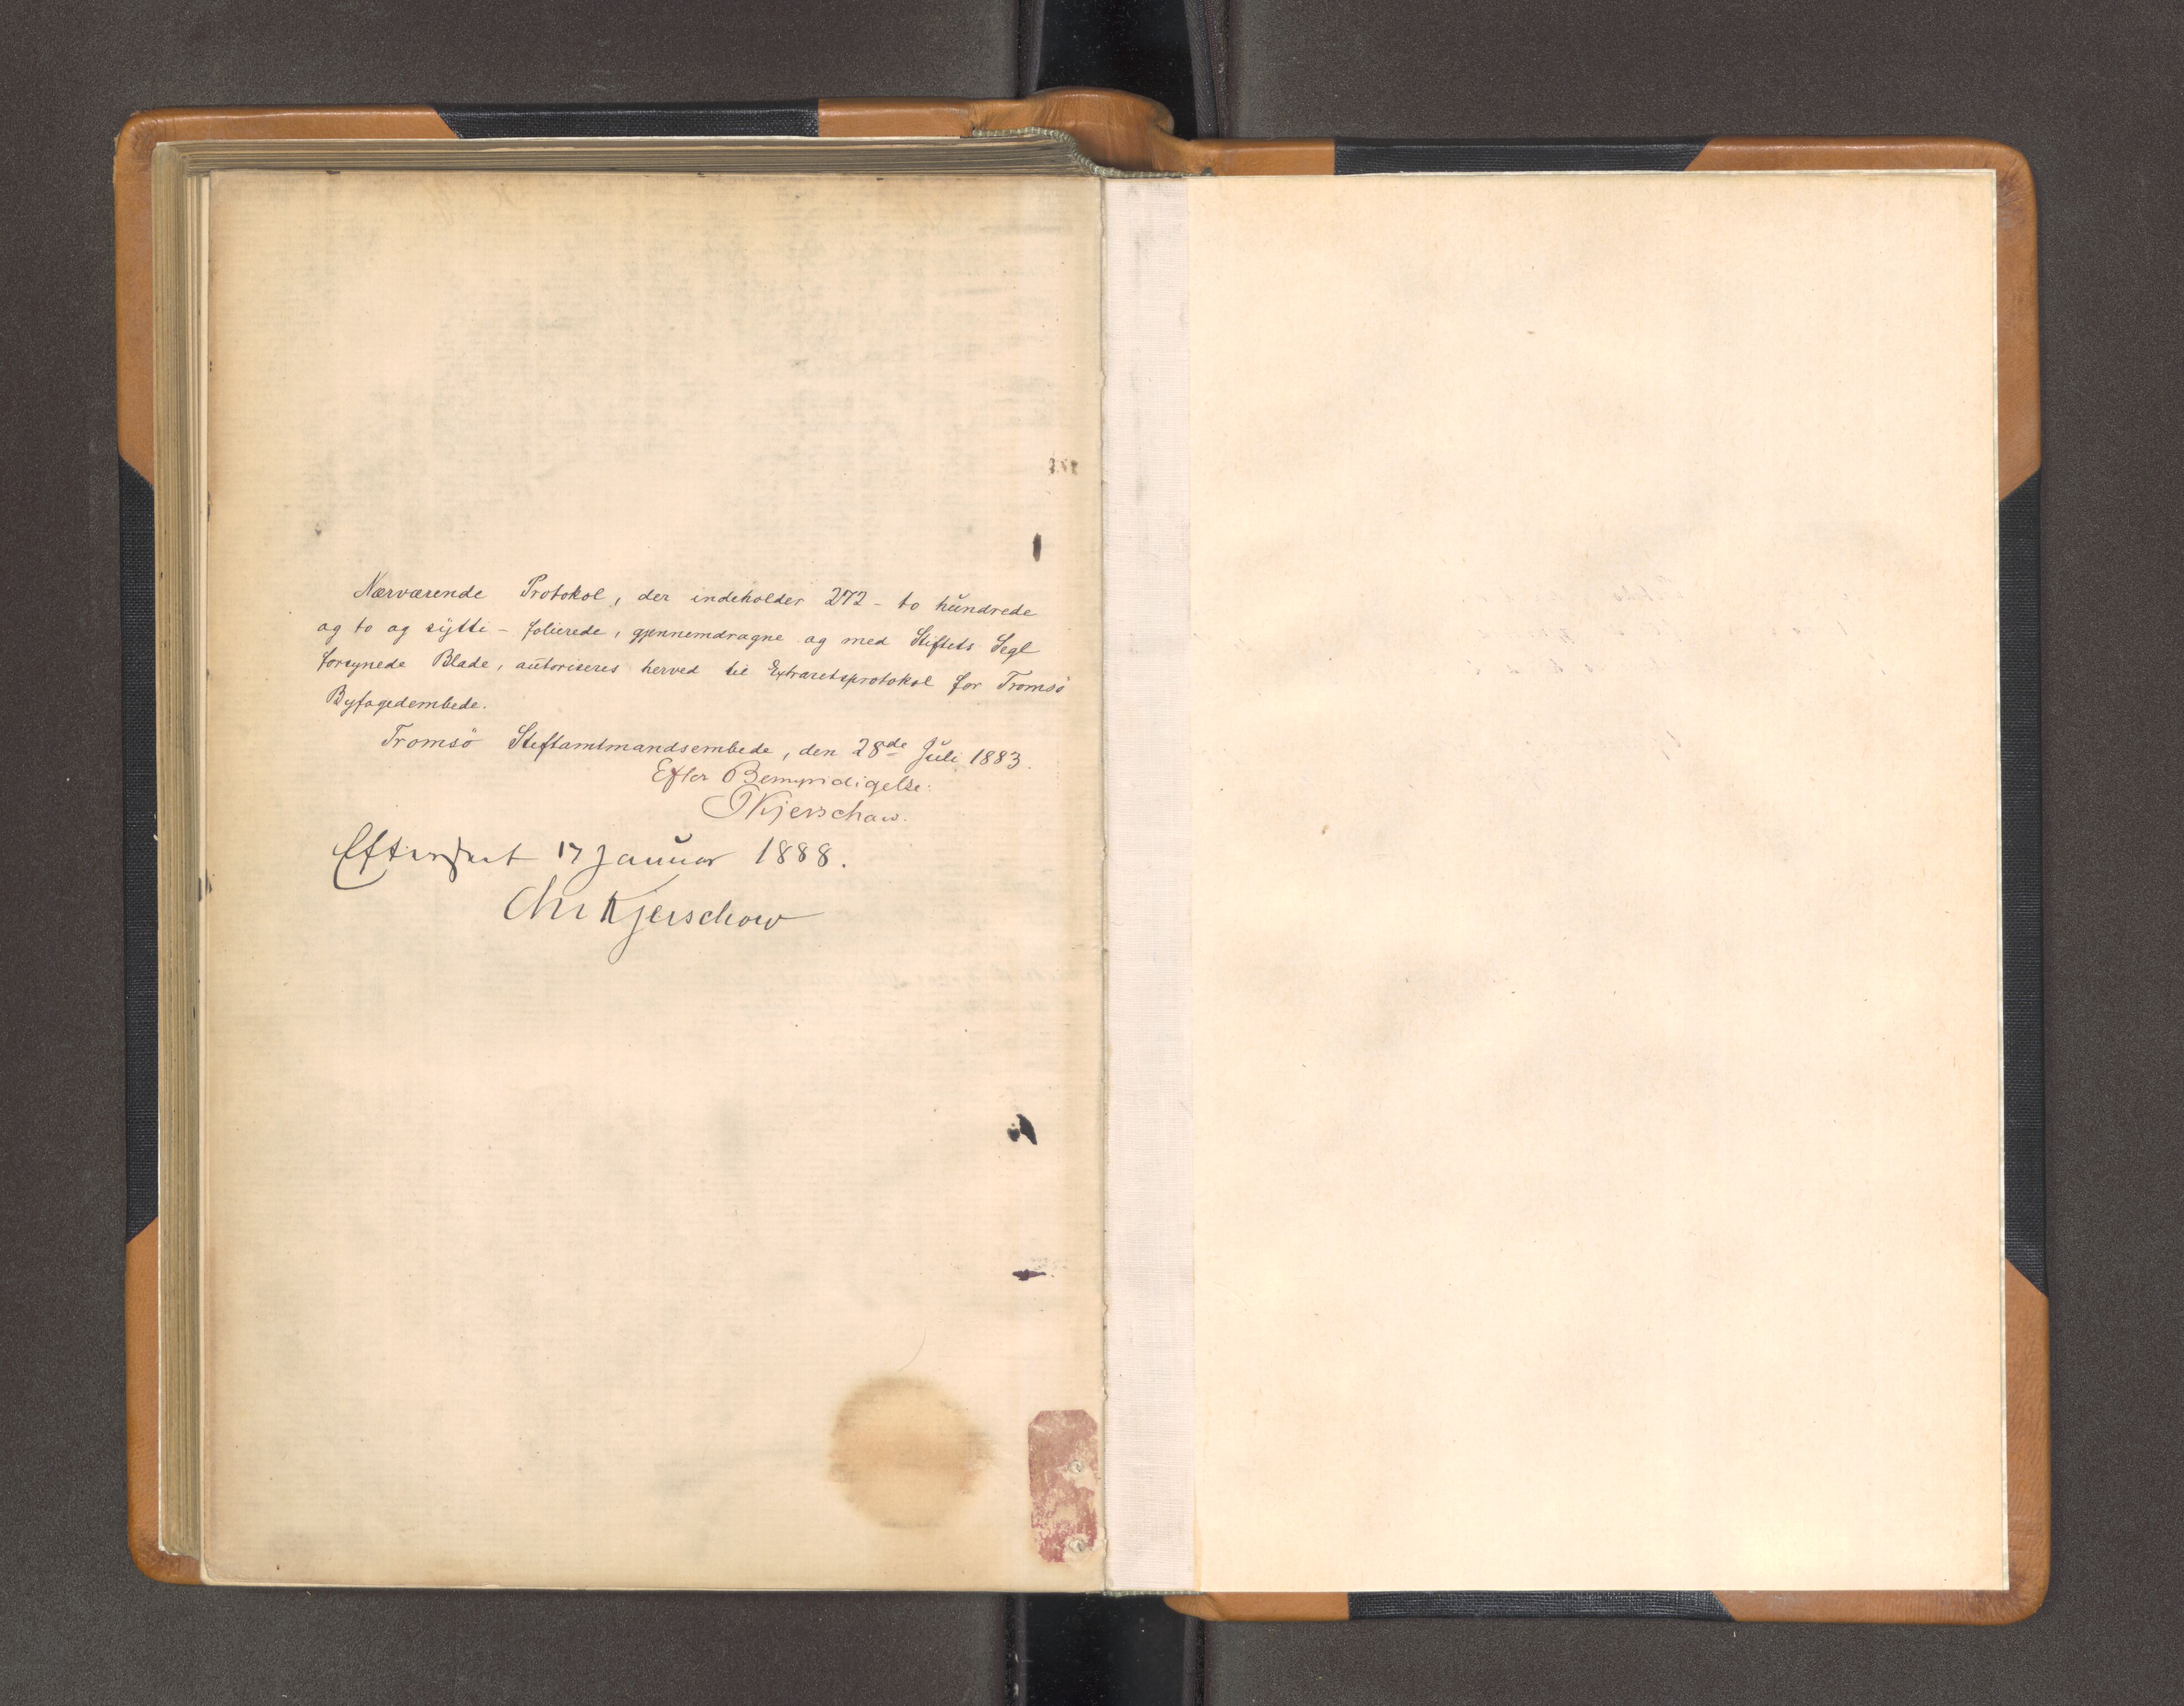 Nærværende Protokol, der indeholder 272 - to hundrede
og to og sytti - folierede, gjennemdragne og med Stiftets Segl
forsynede Blade, autoriseres herved til Extraretsprotokol for Tromsö
Byfogedembede.
Tromsö Stiftamtmandsembede, den 28de Juli 1883.
Efter Bemyndigelse.
Kjerschow.
Efterseet 17 Januar 1888.
Chr Kjerschow